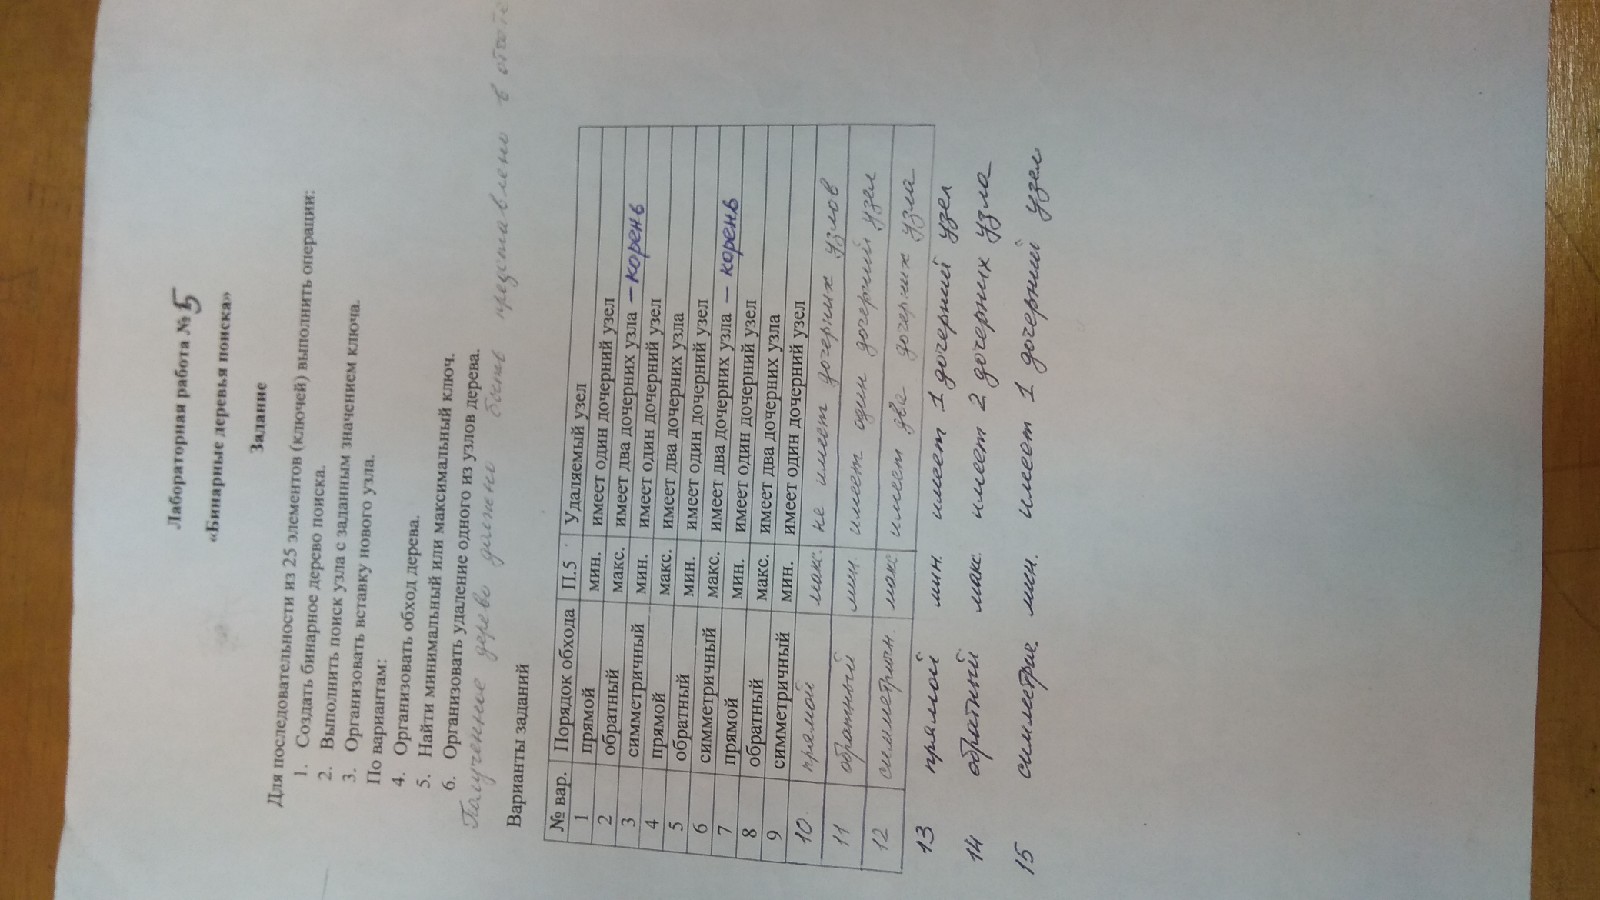 Лабораторная работа № 5
«Бинарные деревья поиска»
Задание
Для последовательности из 25 элементов (ключей) выполнить операции:
1. Создать бинарное дерево поиска.
2. Выполнить поиск узла с заданным значением ключа.
3. Организовать вставку нового узла.
По вариантам:
4. Организовать обход дерева.
5. Найти минимальный или максимальный ключ.
6. Организовать удаление одного из узлов дерева.
Полученное дерево должно быть представлено в отчете
Варианты заданий
№ вар. Порядок обхода П.5 Удаляемый узел
1 прямой мин. имеет один дочерний узел
2 обратный макс. имеет два дочерних узла – корень
3 симметричный мин. имеет один дочерний узел
4 прямой макс. имеет два дочерних узла
5 обратный мин. имеет один дочерний узел
6 симметричный макс. имеет два дочерних узла – корень
7 прямой мин. имеет один дочерний узел
8 обратный макс. имеет два дочерних узла
9 симметричный мин. имеет один дочерний узел
10. прямой макс. не имеет дочерних узлов
11 обратный мин. имеет один дочерний узел
12 симметричн. макс имеет два дочерних узла
13 прямой мин. имеет 1 дочерний узел
14 обратный макс. имеет 2 дочерних узла
15 симметрич. мин. имеет 1 дочерний узел